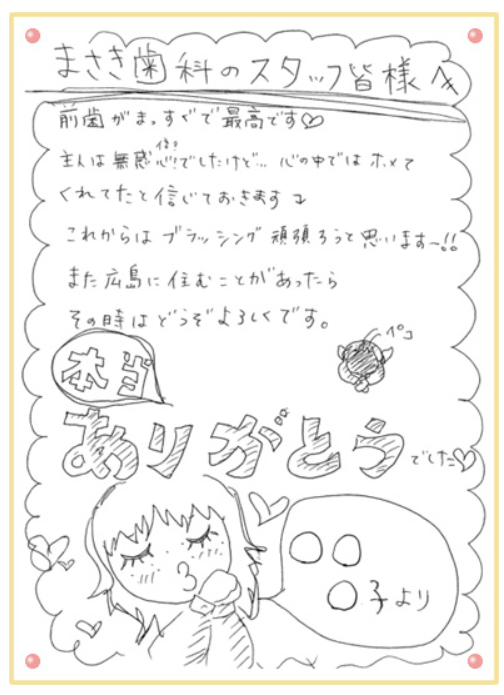 まさき歯科のスタッフ皆様へ
前歯がまっすぐで最高です♡
主人は無感心!でしたけど… 心の中ではホメて
くれてたと信じておきます
これからはブラッシング頑張ろうと思います〜!!
また広島に住むことがあったら
その時はどうぞよろしくです。
ペコ
本当
ありがとうでした♡
〇〇
〇子より